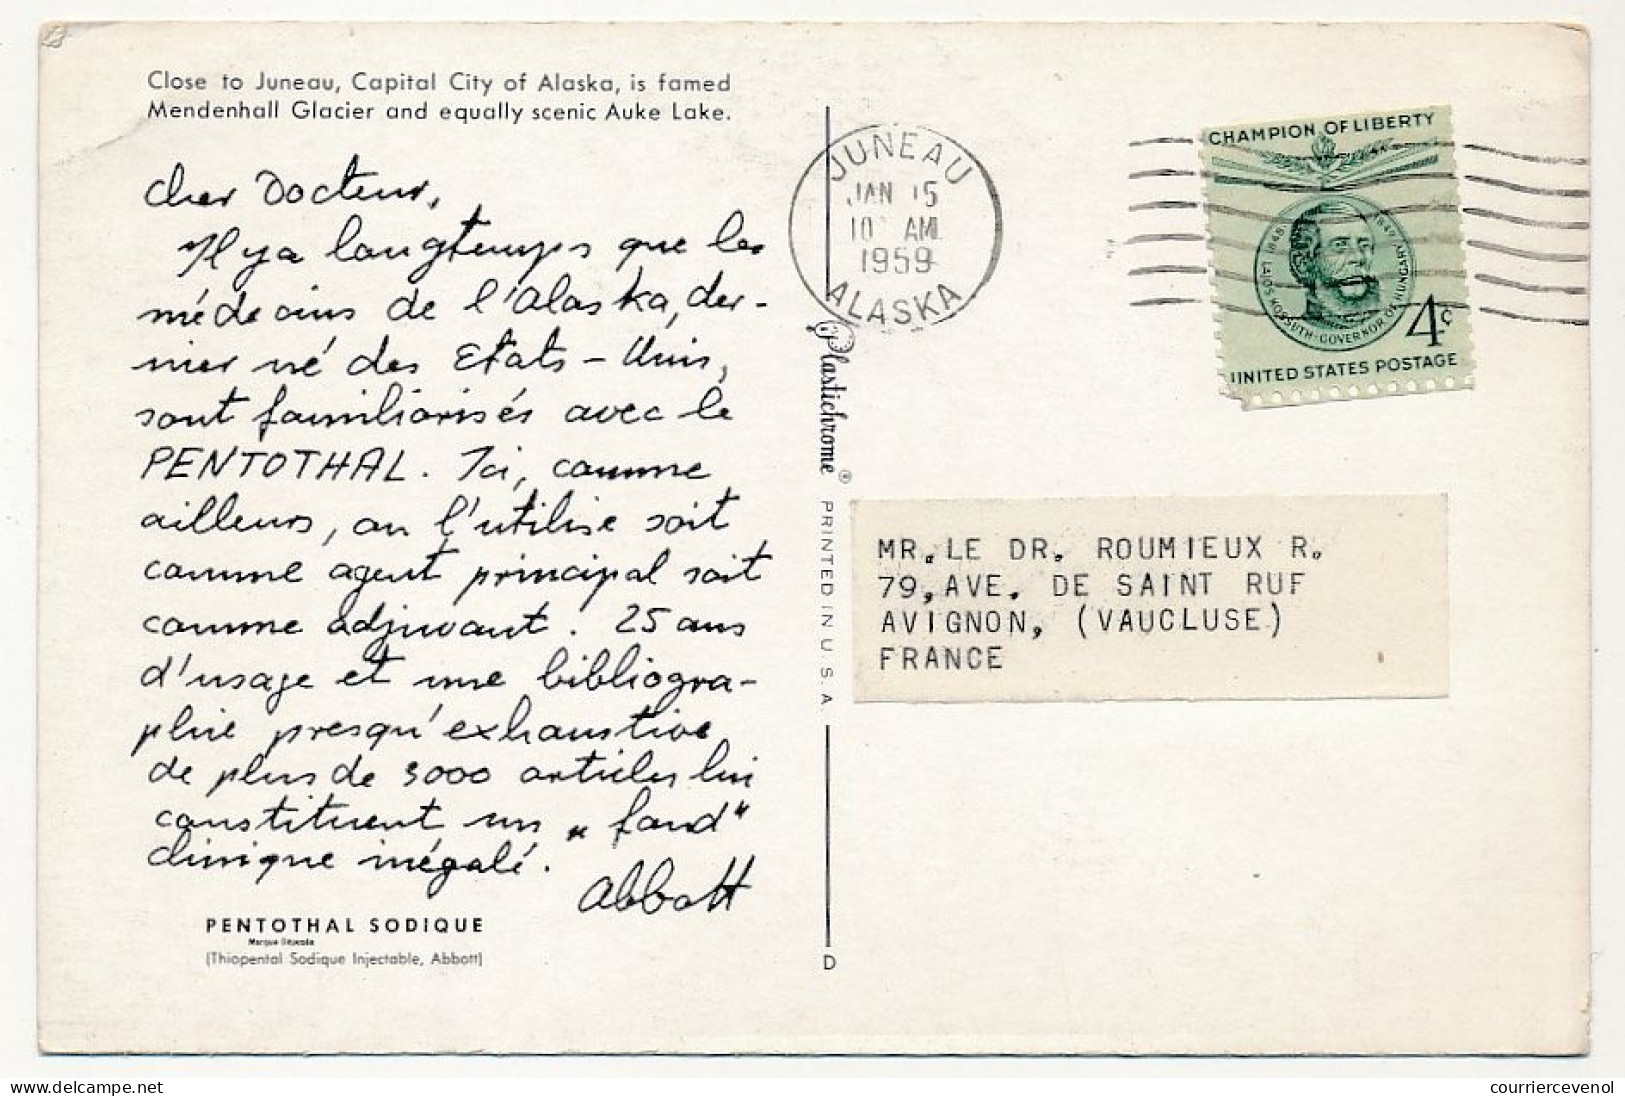 Close to Juneau, Capital City of Alaska, is famed
Mendenhall Glacier and equally scenic Auke Lake.
Cher Docteur,
Il y a longtemps que les
médecins de l'Alaska, der-
nier né des Etats-Unis,
sont familiarisés avec le
PENTOTHAL. Ici, comme
ailleurs, on l'utilise soit
comme agent principal soit
comme adjuvant. 25 ans
d'usage et une bibliogra-
phie presqu'exhaustive
de plus de 3000 articles lui
constituent un „fond"
clinique inégalé.
Abbott
PENTOTHAL SODIQUE
Marque Déposée
(Thiopental Sodique Injectable, Abbott)
Plastichrome® PRINTED IN U.S.A.
D
JUNEAU
JAN 15
10 AM
1959
ALASKA
CHAMPION OF LIBERTY
1848 LAJOS KOSSUTH-GOVERNOR OF HUNGARY 1849
4c
UNITED STATES POSTAGE
MR.LE DR. ROUMIEUX R.
79,AVE. DE SAINT RUF
AVIGNON, (VAUCLUSE)
FRANCE
delcampe.net
courriercevenol